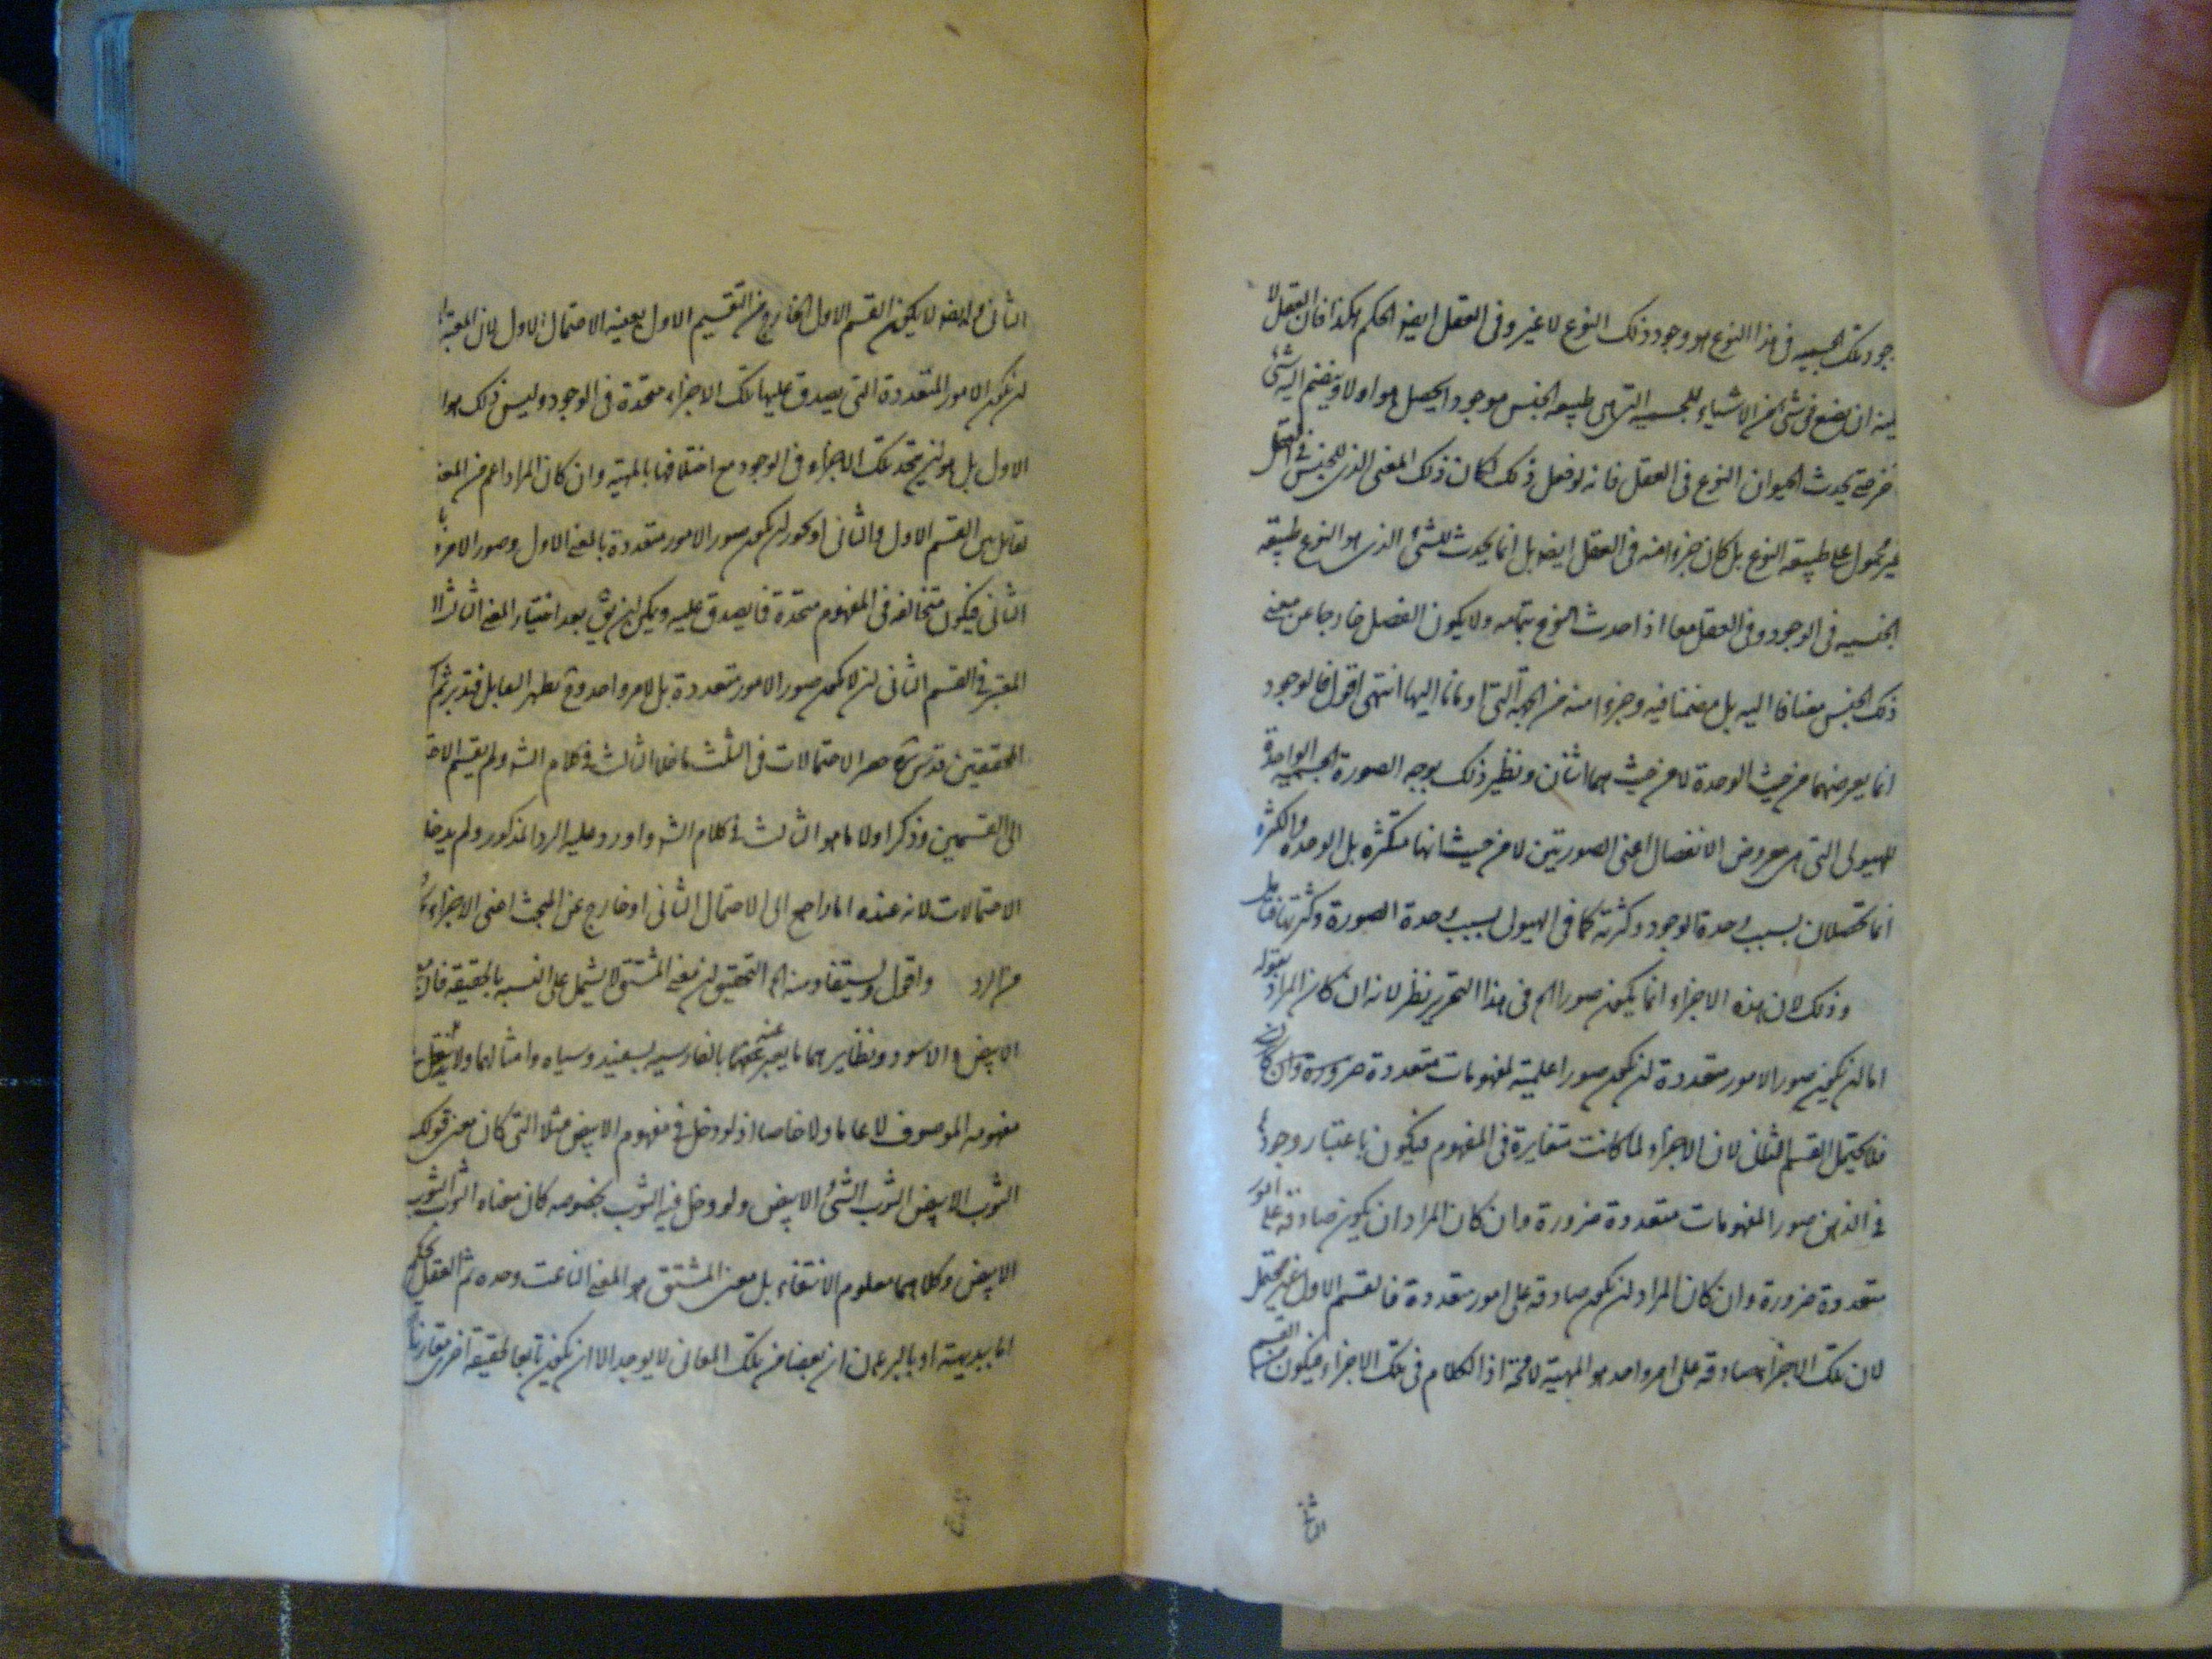 جود تلك الجسميه فى هذا النوع هو وجود ذلك النوع لا غير وفى العقل ايضا الحكم هكذا فان العقل لا
يمكنه ان يضع فى شئ من الاشياء للجسميه التى هى طبيعه الجنس وجودا يحصل هو اولا وينضم اليه شئ
اخر حتى يحدث الحيوان النوع فى العقل فانه لو فعل ذلك لكان ذلك المعنى الذى للجنس فى العقل
غير محمول على طبيعة النوع بل كان جزءا منه فى العقل ايضا بل انما يحدث للشئ الذى هو النوع طبيعه
الجنسيه فى الوجود وفى العقل معا اذا حدث النوع بتمامه ولا يكون الفصل خارجا عن معنى
ذلك الجنس مضافا اليه بل مضمنا فيه وجزءا منه من الجهة التى اومأنا اليها انتهى اقول فالوجود
انما يعرضهما من حيث الوحدة لا من حيث هما اثنان ونظير ذلك بوجه الصورة الجسمية الواحدة
للهيولى التى هى معروض الانفصال اعنى الصورتين لا من حيث انها متكثرة بل الوحدة والكثرة
انما تحصلان بسبب وحدة الوجود وكثرته كما فى الهيولى بسبب وحدة الصورة وكثرتها فتامل
وذلك لان هذه الاجزاء انما يكون صورا الخ فى هذا التحرير نظر لانه ان كان المراد بقوله
اما ان يكون صورا لامور متعددة ان يكون صورا علمية لمفهومات متعددة ضرورة وان كان
فلا يحتمل القسم الثانى لان الاجزاء لما كانت متغايرة فى المفهوم فيكون باعتبار وجودها
فى الذهن صور المفهومات متعددة ضرورة وان كان المراد ان يكون صادقه على امور
متعددة ضرورة وان كان المراد ان يكون صادقه على امور متعددة فالقسم الاول غير محتمل
لان تلك الاجزاء صادقه على امر واحد هو المهية لا محة اذ الكلام فى تلك الاجزاء فيكون من القسم
الثانى
الثانى وايضا لا يكون القسم الاول الخارج من التقسيم الاول بعينه الاحتمال الاول لان المعتبر
ان يكون الامور المتعددة التى يصدق عليها تلك الاجزاء متحدة فى الوجود وليس ذلك هو
الاول بل هو ان يتحد تلك الاجزاء فى الوجود مع اختلافها بالمهية وان كان المراد اعم من المعنى
تقابل بين القسم الاول والثانى اذ يجوز ان يكون صورا لامور متعددة بالمعنى الاول وصورا لامر
الثانى فيكون متخالفه فى المفهوم متحدة فيما يصدق عليه ويمكن ان يق بعد اختيار المعنى الثالث
المعتبر فى القسم الثانى ان لا يكون صورا لامور متعددة بل لامر واحد وح يظهر التقابل فتدبر ثم
المحققين قدس سره حصر الاحتمالات فى الثلث ما خلا الثالث فى كلام الشه ولم يقسم
الى القسمين وذكر اولا ما هو الثالث فى كلام الشه واورد عليه الرد المذكور ولم يدخل
الاحتمالات لانه عنده اما راجع الى الاحتمال الثانى او خارج عن المبحث اعنى الاجزاء
من اراد واقول ويستفاد منه الخ التحقيق ان معنى المشتق لا يشمل على النسبه بالحقيقه فان
الابيض والاسود ونظايرهما ما يعبر عنهما بالفارسيه بسفيد وسياه وامثالهما ولا يدخل
مفهومه الموصوف لا عاما ولا خاصا اذ لو دخل فى مفهوم الابيض مثلا الشئ كان معنى قولك
الثوب الابيض الثوب الشئ الابيض ولو دخل فيه الثوب بخصوصه كان معناه الثوب الثوب
الابيض وكلاهما معلوم الانتفاء بل معنى المشتق هو المعنى الناعت وحده ثم العقل يحكم
اما بديهية او بالبرهان ان بعضا من تلك المعانى لا يوجد الا ان يكون تابعا لحقيقة اخرى مقارنا